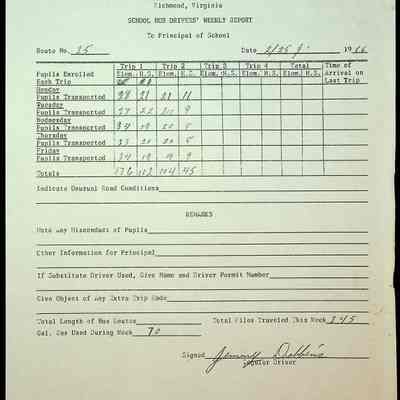 Richmond, Virginia
SCHOOL BUS DRIVERS' WEEKLY REPORT
To Principal of School
Route No. 25 Date 2/25 1966
Trip 1 Trip 2 Trip 3 Trip 4 Total Time of
Pupils Enrolled Elem. H.S. Elem. H.S. Elem. H.S. Elem. H.S. Elem. H.S. Arrival on
Each Trip Last Trip
Monday
Pupils Transported 21 11
Tuesday
Pupils Transported 22 9
Wednesday
Pupils Transported 34 19 20
Thursday
Pupils Transported 20 20
Friday
Pupils Transported 34 19 19 9
Totals 104 45
Indicate Unusual Road Conditions
REMARKS
Note Any Misconduct of Pupils
Other Information for Principal
If Substitute Driver Used, Give Name and Driver Permit Number
Give Object of Any Extra Trip Made
Total Length of Bus Routes Total Miles Traveled This Week 345
Gal. Gas Used During Week 70
Signed
Regular Driver